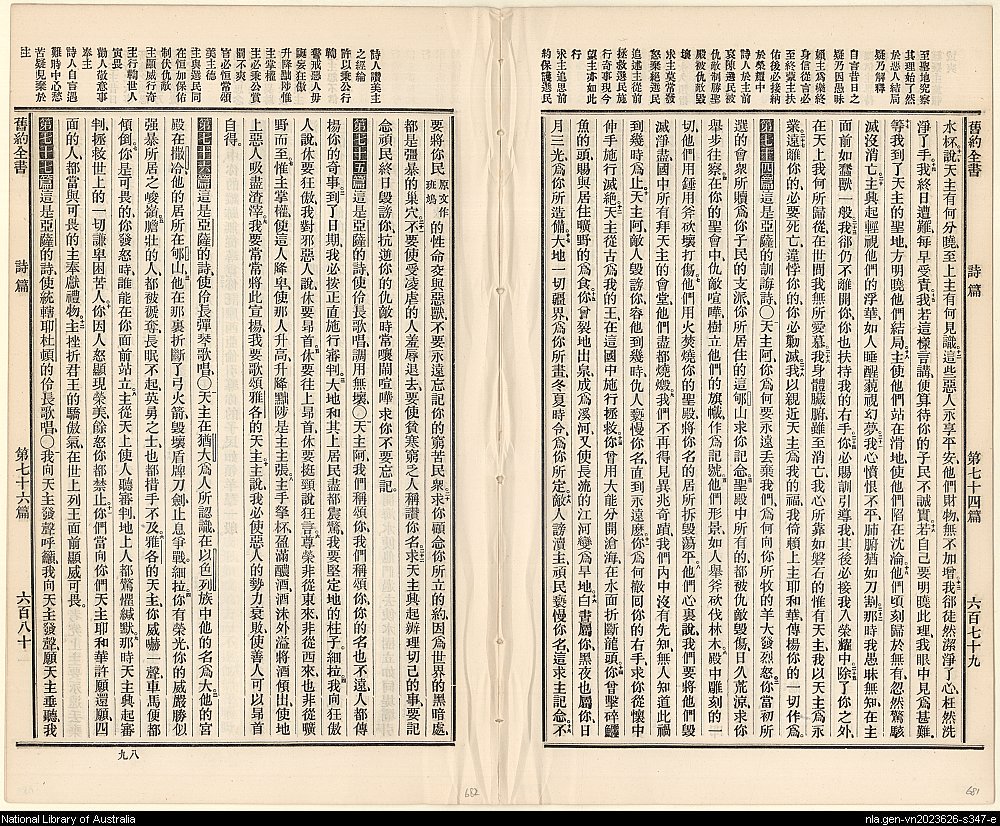 至聖地究察
其理始了然
於惡人結局
疑乃解釋
自咎昔日之
疑乃因愚昧
願主爲樂終
身信從言必
至終蒙主扶
佑後必接納
於榮耀中
詩人於主前
哀陳選民被
仇敵制勝聖
殿被仇敵毀
壞
求主莫常發
怒棄絕選民
追述主從前
拯救選民施
行奇事現今
望主亦如此
求主追思前
約保護選民
舊約全書 詩篇 第七十四篇 六百七十九
水杯說天主有何分曉至上主有何見識這些惡人永享平安他們財物無不加增我卻徒然潔淨了心枉然洗
淨了手我終日遭難每早受責我若這樣言講便算待你的子民不誠實若自己要明曉此理我眼中見爲甚難
等我到了天主的聖地方明曉他們結局主使他們站在滑地使他們陷在沈淪他們頃刻歸於無有忽然驚駭
滅沒消亡主興起輕視他們的浮華如人睡醒藐視幻夢我心憤恨不平肺腑猶如刀割那時我愚昧無知在主
面前如蠢獸一般我卻仍不離開你你也扶持我的右手你必賜訓引導我其後必接我入榮耀中除了你之外
在天上我何所歸從在世間我無所愛慕我身體臟腑雖至消亡我心所靠如磐石的惟有天主我以天主爲永
業遠離你的必要死亡違悖你的你必勦滅我以親近天主爲我的福我倚賴上主耶和華傳揚你的一切作爲
第七十四篇這是亞薩的訓誨詩○天主阿你爲何要永遠丟棄我們爲何向你所牧的羊大發烈怒你當初所
選的會衆所贖爲你子民的支派你所居住的這郇山求你記念聖殿中所有的都被仇敵毀傷日久荒涼求你
舉步往察在你的聖會中仇敵喧嘩樹立他們的旗幟作爲記號他們形景如人舉斧砍伐林木殿中雕刻的一
切他們用錘用斧砍壞打傷他們用火焚燒你的聖殿將你名的居所拆毀蕩平他們心裏說我們要將他們毀
滅淨盡國中所有拜天主的會堂他們盡都燒燬我們不再得見異兆奇蹟我們內中沒有先知無人知道此禍
到幾時爲止天主阿敵人毀謗你容他到幾時仇人褻慢你名直到永遠麼你爲何撤回你的右手求你從懷中
伸手施行滅絕天主從古爲我的王在這國中施行拯救你曾用大能分開滄海在水面折斷龍頭你曾擊碎鱷
魚的頭賜與居住曠野的爲食你曾裂地出泉成爲溪河又使長流的江河變爲旱地白晝屬你黑夜也屬你日
月三光爲你所造備大地一切疆界爲你所畫冬夏時令爲你所定敵人謗瀆主頑民褻慢你名這求主記念不
要將你民原文作班鳩的性命交與惡獸不要永遠忘記你的窮苦民衆求你顧念你所立的約因爲世界的黑暗處
都是彊暴的巢穴不要使受凌虐的人羞辱退去要使貧寒窮乏之人稱讚你名求天主興起辦理切己的事要記
念頑民終日毀謗你抗逆你的仇敵時常嚷鬧喧嘩求你不要忘記
第七十五篇這是亞薩的詩使伶長歌唱調用無壞○天主阿我們稱頌你我們稱頌你你的名也不遠人都傳
揚你的奇事到了日期我必按正直施行審判大地和其上居民盡都震驚我要堅定地的柱子細拉我向狂傲
人說休要狂傲我對邪惡人說休要昂首休要往上昂首休要挺頸說狂言尊榮非從東來非從西來也非從曠
野而至惟主掌權使這人降卑使那人升高升降黜陟是主主張主手擎杯盈滿醲酒酒沫外溢將酒傾出使地
上惡人吸盡渣滓我要常常將此宣揚我要歌頌雅各的天主主說我必使惡人的勢力衰敗使善人可以昂首
自得
第七十六篇這是亞薩的詩使伶長彈琴歌唱○天主在猶大爲人所認識在以色列族中他的名爲大他的宮
殿在撒冷他的居所在郇山他在那裏折斷了弓火箭毀壞盾牌刀劍止息爭戰細拉你有榮光你的威嚴勝似
强暴所居之峻嶺膽壯的人都被擄奪長眠不起英勇之士也都措手不及雅各的天主你威嚇一聲車馬便都
傾倒你是可畏的你發怒時誰能在你面前站立主從天上使人聽審判地上人都驚懼緘默那時天主興起審
判拯救世上的一切謙卑困苦人你因人怒顯現榮美餘怒你都禁止你們當向你們天主耶和華許願還願四
面的人都當與可畏的主奉獻禮物主挫折君王的驕傲氣在世上列王面前顯威可畏
第七十七篇這是亞薩的詩使統轄耶杜頓的伶長歌唱○我向天主發聲呼籲我向天主發聲願天主垂聽我
舊約全書 詩篇 第七十六篇 六百八十
詩人讚美主
之經綸
許以秉公行
鞫
警戒愚人毋
誨妄狂傲
升降黜陟惟
主掌權
主必秉公賞
罰不爽
官必恒常頌
美主德
主與選民同
在恒加保佑
制伏仇敵
主顯威行奇
主行鞫世人
寅畏
勸人敬意事
奉主
詩人自言遇
難時中心愁
苦疑見棄於
主
八九
682
681
National Library of Australia
nla.gen-vn2023626-s347-e